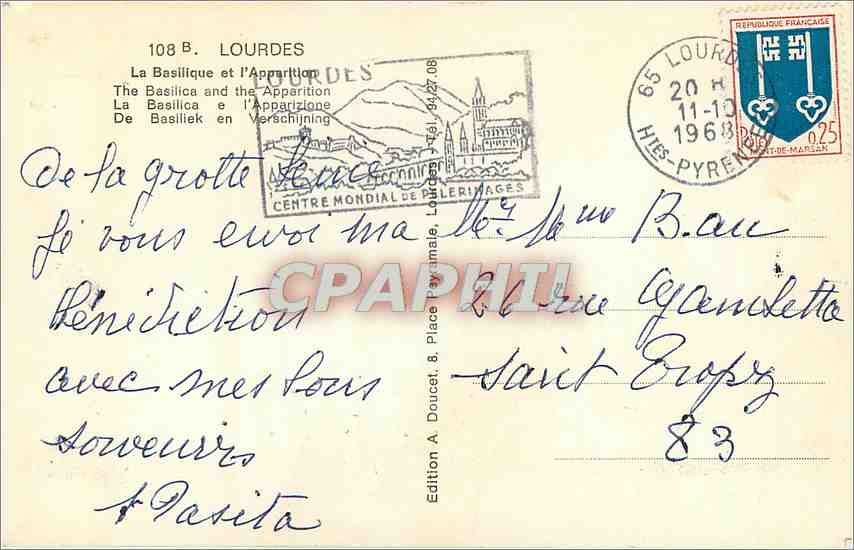 108 B. LOURDES
La Basilique et l'Apparition
The Basilica and the Apparition
La Basilica e l'Apparizione
De Basiliek en Verschijning
LOURDES
CENTRE MONDIAL DE PELERINAGES
65 LOURDES
20 H
11-10
1968
HTES-PYRENEES
REPUBLIQUE FRANÇAISE
0,25
MONT-DE-MARSAN
De la grotte
Je vous envoi ma
Bénédiction
avec mes bons
souvenirs
Pasita
Edition A. Doucet, 8, Place Peyramale, Lourdes - Tél. 94.27.08
Mr Mme Bau
26 rue Gambetta
Saint Tropez
83
CPAPHIL